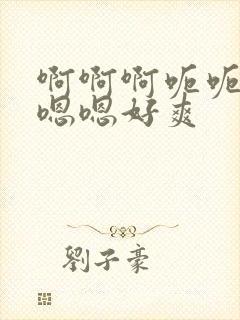 啊啊啊呃呃
嗯嗯好爽
劉子豪